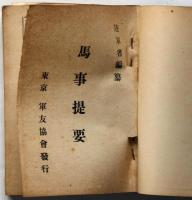 陸軍省編纂
馬事提要
東京 軍友協會發行